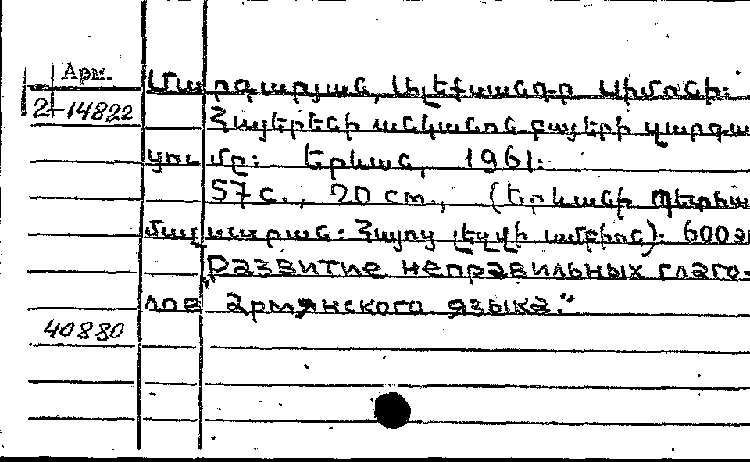 Арм.
Մարգարյան, Ալեքսանդր Սիմոնի:
2-14822
Հայերենի անկանոն բայերի զարգա
ցու մը: Երևան, 1961.
57 с., 20 см., (Երևանի
Հայոց լեզվի ամբիոն). 600
„Развитие неправильных глаго-
лов армянского языка."
40880